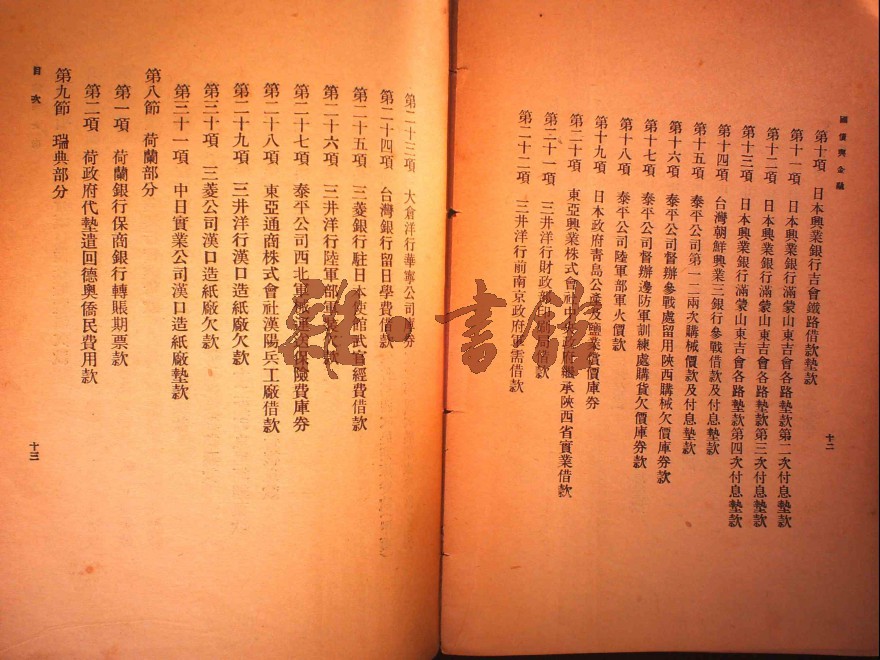 國債與金融
第十項 日本興業銀行吉會鐵路借款墊款
第十一項 日本興業銀行滿蒙山東吉會各路墊款第二次付息墊款
第十二項 日本興業銀行滿蒙山東吉會各路墊款第三次付息墊款
第十三項 日本興業銀行滿蒙山東吉會各路墊款第四次付息墊款
第十四項 台灣朝鮮興業三銀行參戰借款及付息墊款
第十五項 泰平公司第一二兩次購械價款及付息墊款
第十六項 泰平公司督辦參戰處留用陝西購械欠價庫券款
第十七項 泰平公司督辦邊防軍訓練處購貨欠價庫券款
第十八項 泰平公司陸軍部軍火價款
第十九項 日本政府青島公產及鹽業償價庫券
第二十項 東亞興業株式會社中央政府繼承陝西省實業借款
第二十一項 三井洋行財政部印刷局借款
第二十二項 三井洋行前南京政府軍需借款
十二
第二十三項 大倉洋行華寧公司庫券
第二十四項 台灣銀行留日學費借款
第二十五項 三菱銀行駐日本使館武官經費借款
第二十六項 三井洋行陸軍部軍裝欠款
第二十七項 泰平公司西北軍械運送保險費庫券
第二十八項 東亞通商株式會社漢陽兵工廠借款
第二十九項 三井洋行漢口造紙廠欠款
第三十項 三菱公司漢口造紙廠欠款
第三十一項 中日實業公司漢口造紙廠墊款
第八節 荷蘭部分
第一項 荷蘭銀行保商銀行轉賬期票款
第二項 荷政府代墊遣回德奧僑民費用款
第九節 瑞典部分
目次
十三
雜·書館